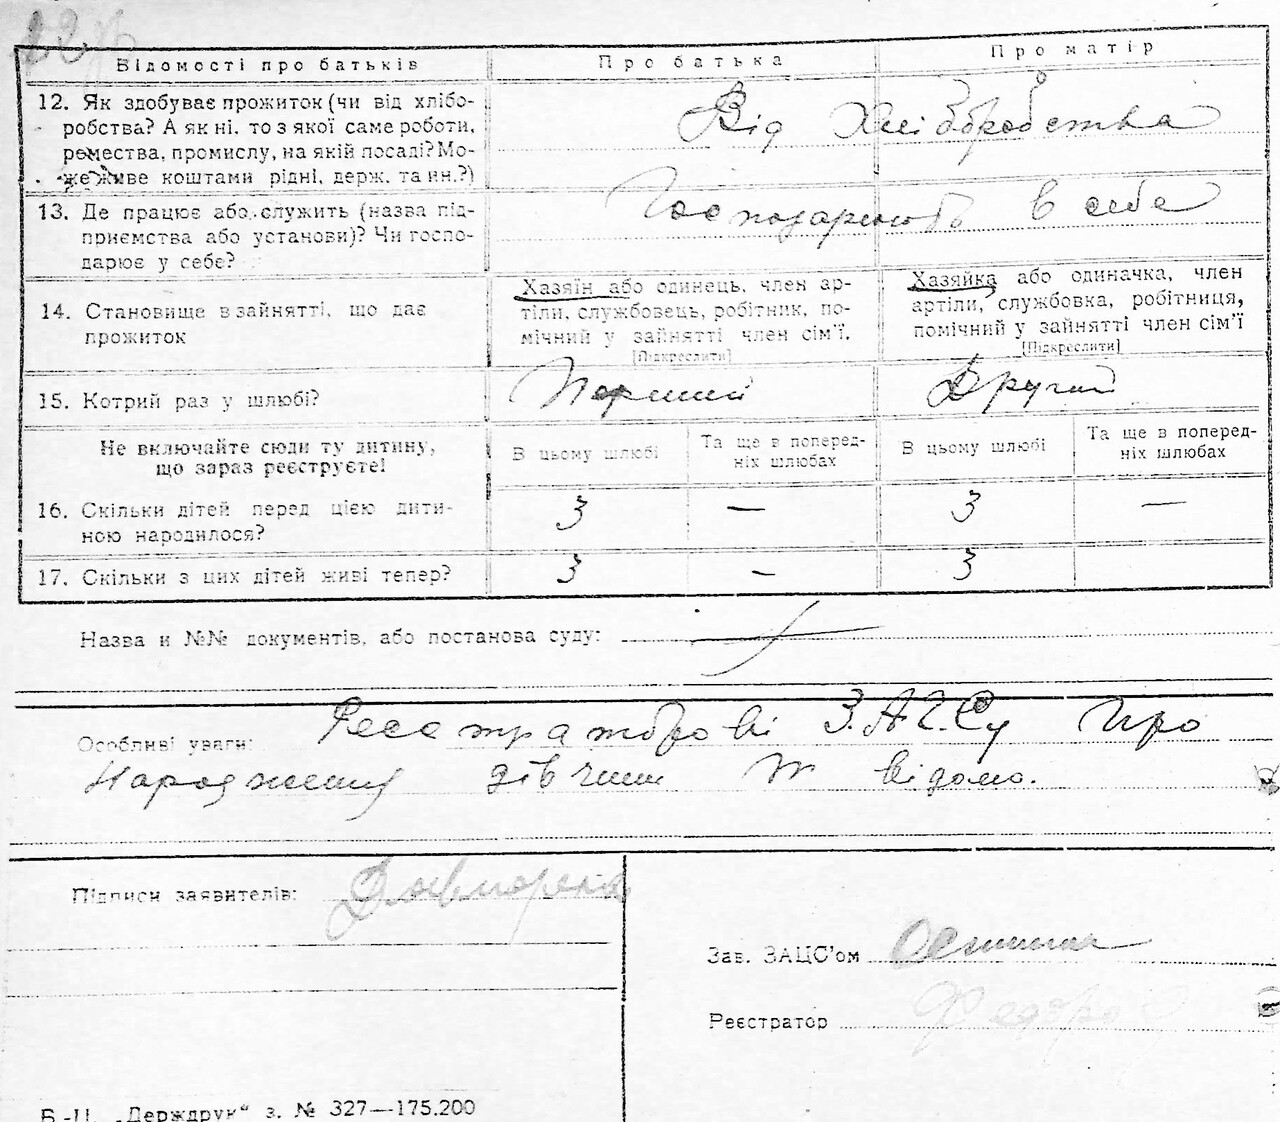 Відомості про батьків
Про батька
Про матір
12. Як здобуває прожиток (чи від хлібо-
робства? А як ні, то з якої саме роботи,
ремества, промислу, на якій посаді? Мо-
же живе коштами рідні, держ. та ин.?)
Від Хліборобства
13. Де працює або служить (назва під-
приємства або установи)? Чи госпо-
дарює у себе?
Господарюють в себе
14. Становище в зайнятті, що дає
прожиток
Хазяїн або одинець, член ар-
тіли, службовець, робітник, по-
мічний у зайнятті член сім'ї.
[Підкреслити]
Хазяйка або одиначка, член
артіли, службовка, робітниця,
помічний у зайнятті член сім'ї
[Підкреслити]
15. Котрий раз у шлюбі?
Перший
Другий
Не включайте сюди ту дитину,
що зараз реєструєте!
В цьому шлюбі
Та ще в поперед-
ніх шлюбах
В цьому шлюбі
Та ще в поперед-
ніх шлюбах
16. Скільки дітей перед цією дити-
ною народилося?
3 — 3 —
17. Скільки з цих дітей живі тепер?
3 — 3
Назва и №№ документів, або постанова суду:
Особливі уваги: Реестраторові З.А.Г.Су про
Народження дівчини відомо.
Підписи заявителів:
Зав. ЗАЦС'ом
Реєстратор
Б.-Ц. „Держдрук“ з. № 327—175.200